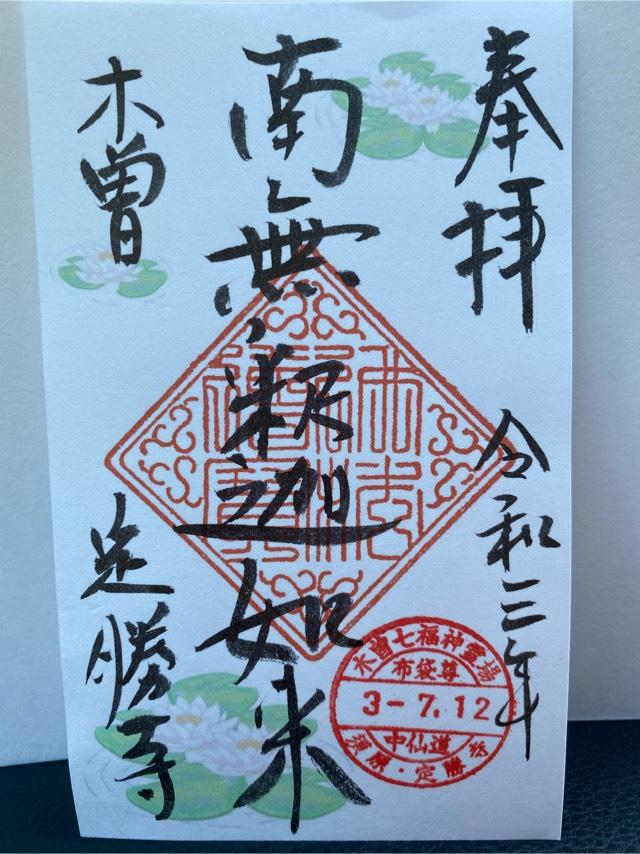 奉拝
令和三年
南無釈迦如来
木曽
定勝寺
木曽七福神霊場
布袋尊
3-7.12
中仙道
須原・定勝寺